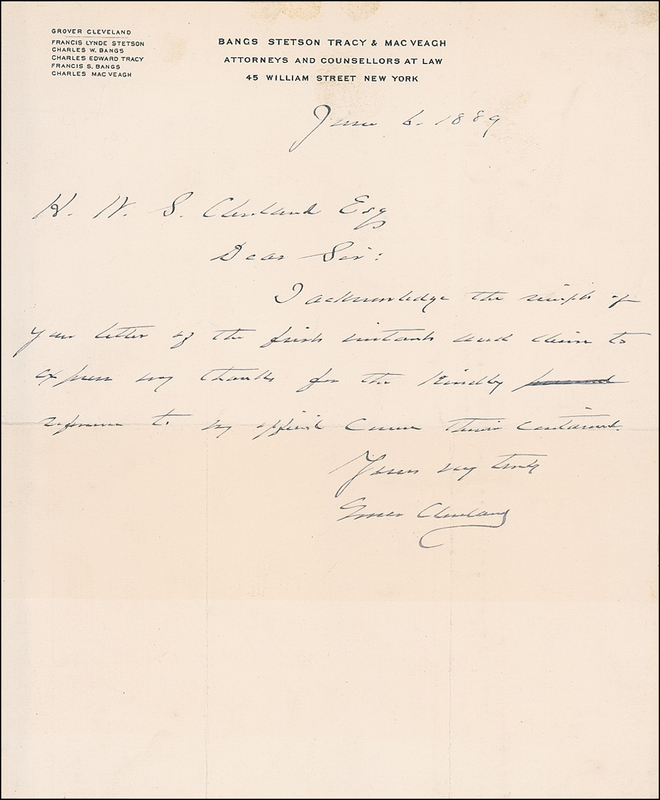 GROVER CLEVELAND
FRANCIS LYNDE STETSON
CHARLES W. BANGS
CHARLES EDWARD TRACY
FRANCIS S. BANGS
CHARLES MAC VEAGH
BANGS STETSON TRACY & MAC VEAGH
ATTORNEYS AND COUNSELLORS AT LAW
45 WILLIAM STREET NEW YORK
June 6. 1889
H. W. S. Cleveland Esq
Dear Sir:
I acknowledge the receipt of
your letter of the first instant and desire to
express my thanks for the kindly
reference to my official career therein contained.
Yours very truly
Grover Cleveland